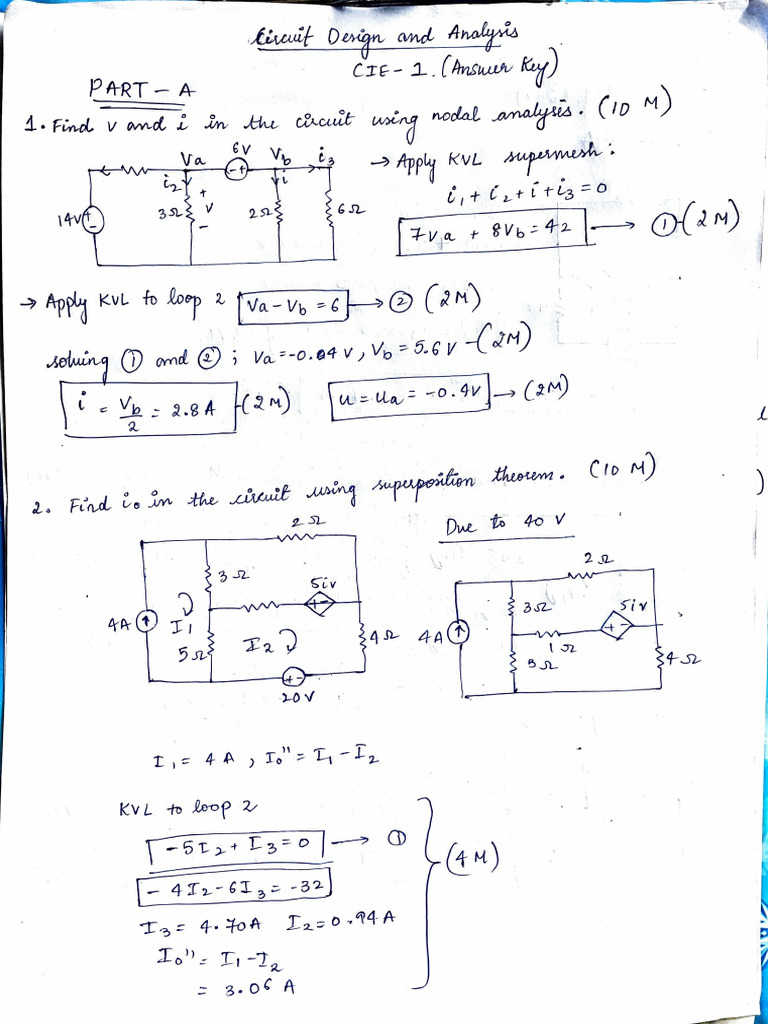 Circuit Design and Analysis
CIE-1. (Answer Key)
PART-A
1. Find v and i in the circuit using nodal analysis. (10 M)
Va 6V Vb i3
- +
i2 + i
14V + - 3Ω v - 2Ω 6Ω
→ Apply KVL supermesh:
i1 + i2 + i + i3 = 0
7Va + 8Vb = 42 → ① -(2M)
→ Apply KVL to loop 2 Va - Vb = 6 → ② (2M)
solving ① and ②; Va = -0.04 V, Vb = 5.6 V -(2M)
i = Vb/2 = 2.8 A -(2M) u = ua = -0.4V → (2M)
2. Find io in the circuit using superposition theorem. (10 M)
2Ω
3Ω
5iv
+ -
4A I1
5Ω I2 4Ω
+ -
20V
Due to 40 V
2Ω
3Ω 5iv
+ -
4A 1Ω
5Ω 4Ω
I1 = 4 A, Io" = I1 - I2
KVL to loop 2
-5I2 + I3 = 0 → ①
- 4I2 - 6I3 = -32 (4M)
I3 = 4.70A I2 = 0.94A
Io" = I1 - I2
= 3.06 A
)